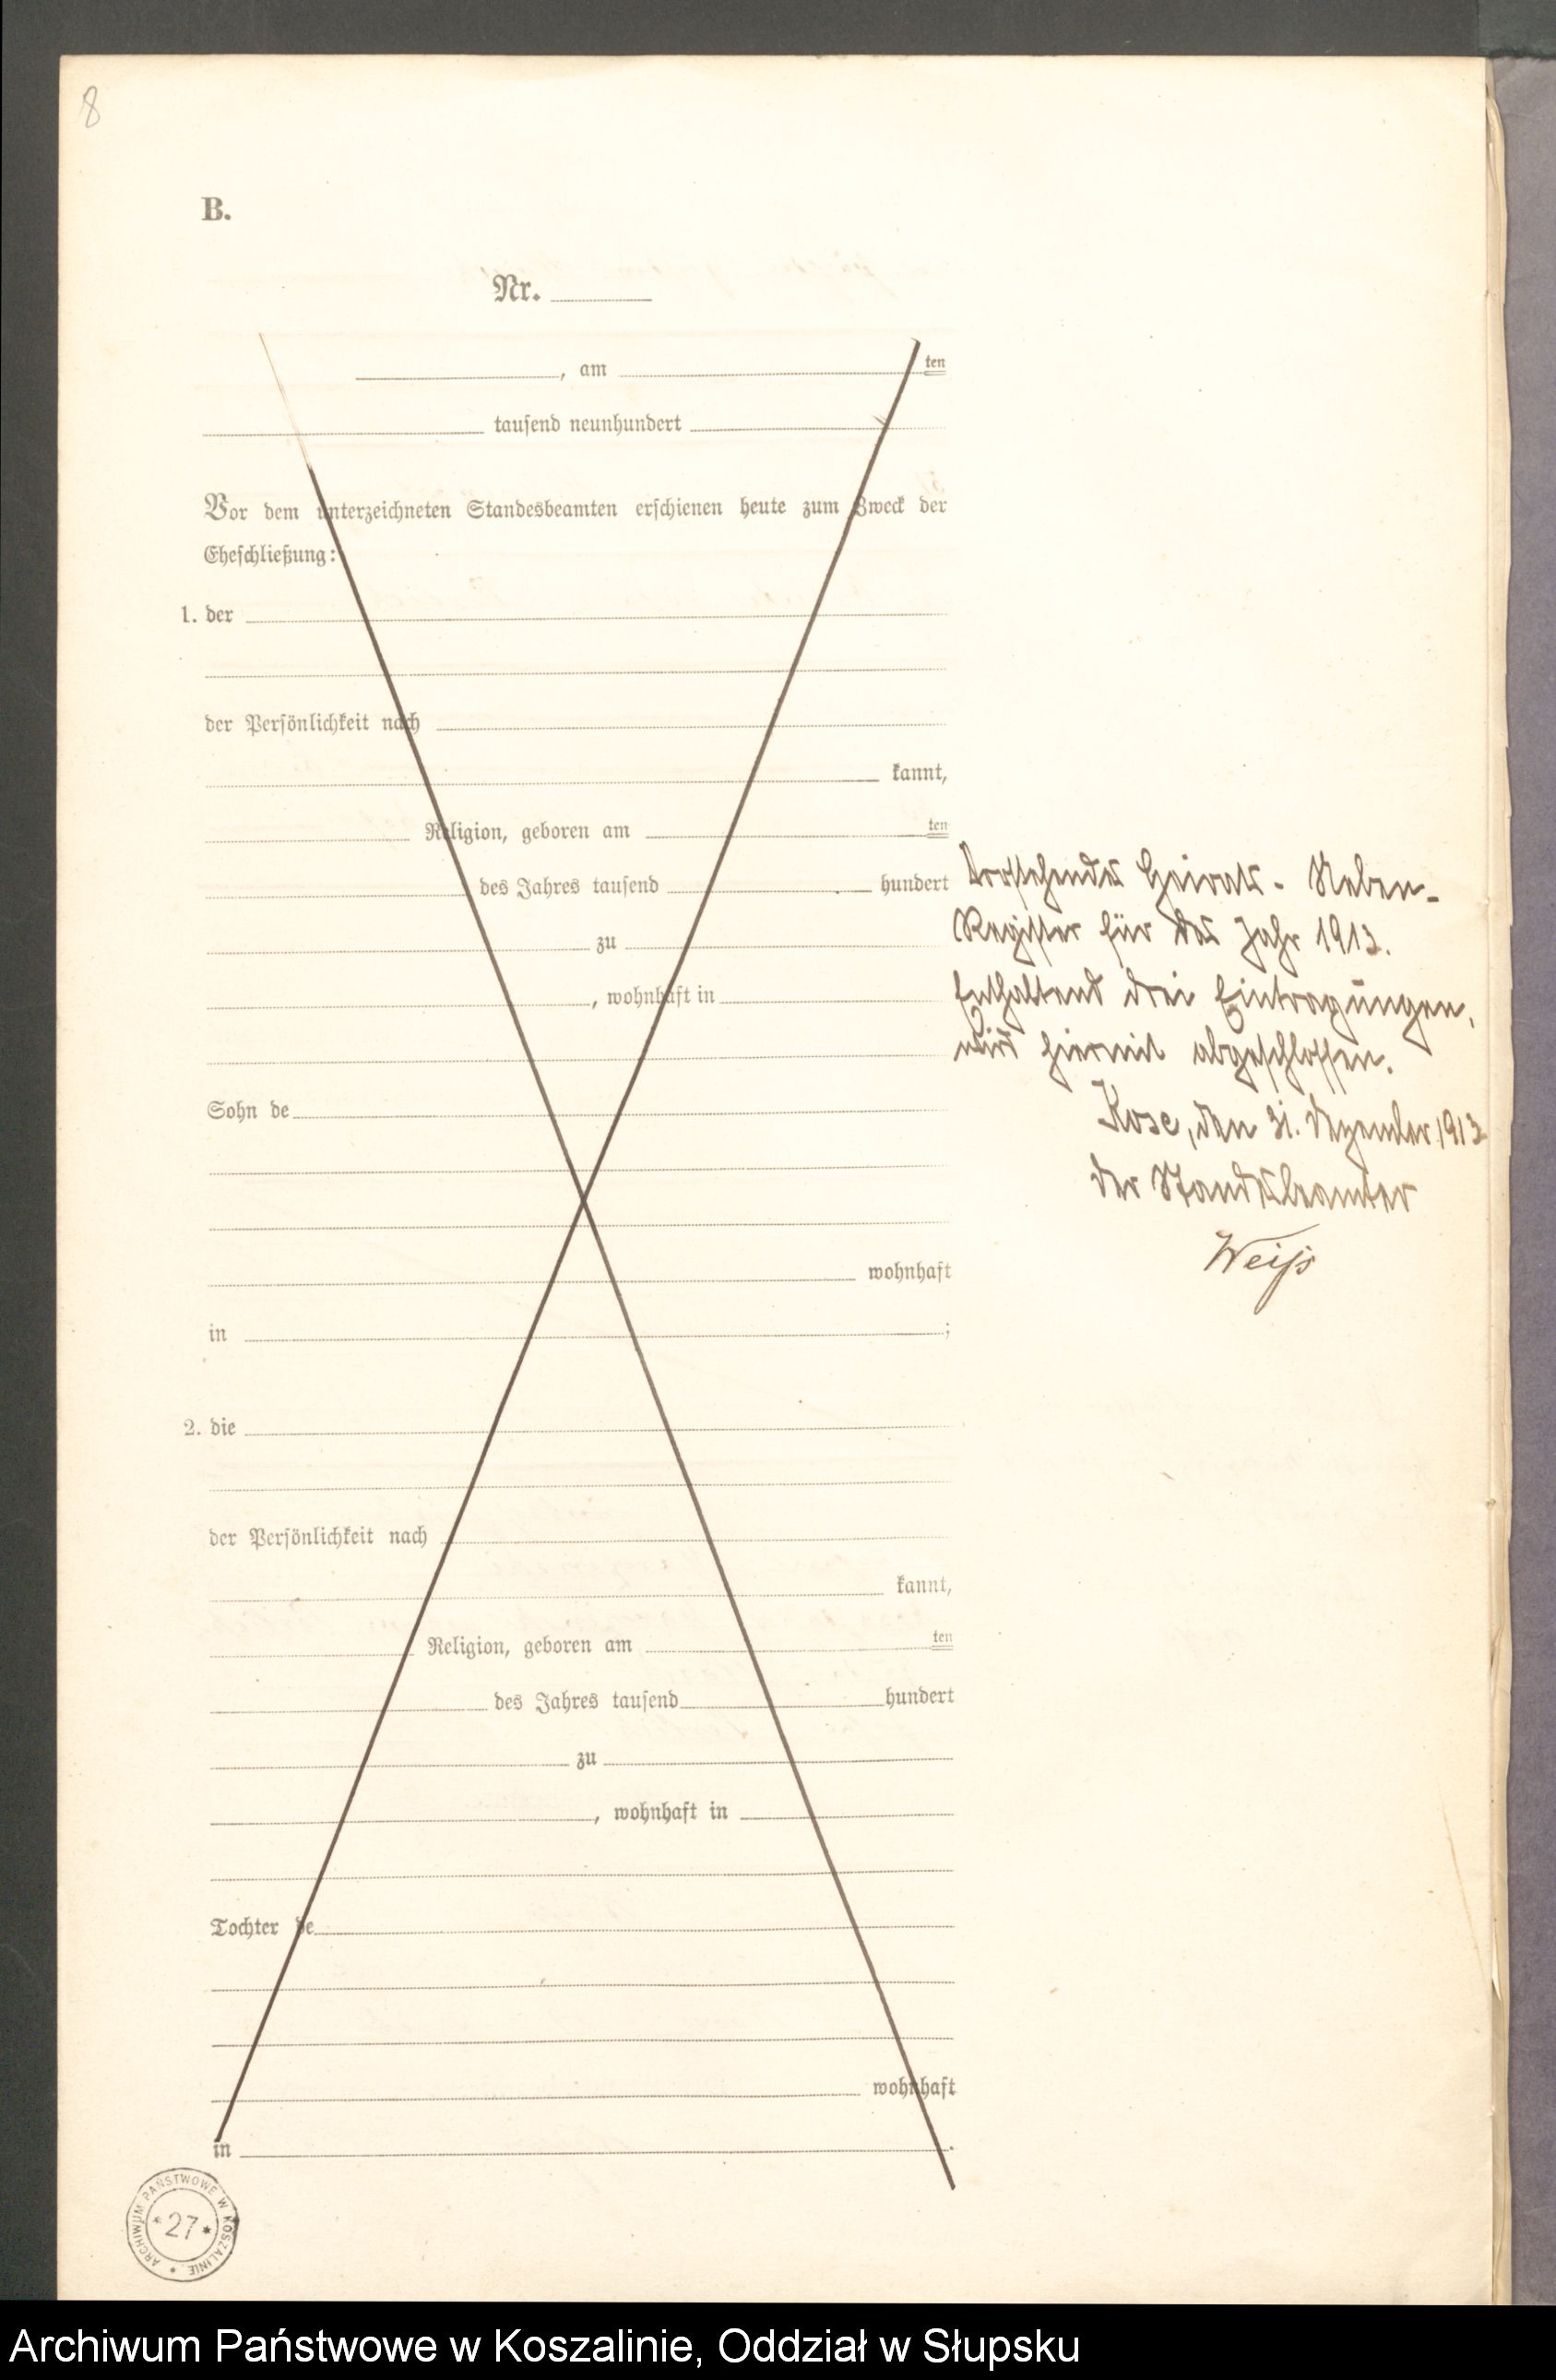 8
B.
Nr.
, am ten
tausend neunhundert
Vor dem unterzeichneten Standesbeamten erschienen heute zum Zweck der
Eheschließung:
1. der
der Persönlichkeit nach
kannt,
Religion, geboren am ten
des Jahres tausend hundert
zu
, wohnhaft in
Sohn de
wohnhaft
in ;
2. die
der Persönlichkeit nach
kannt,
Religion, geboren am ten
des Jahres tausend hundert
zu
, wohnhaft in
Tochter de
wohnhaft
in .
Vorstehendes Heirats- Neben-
Register für das Jahr 1913.
Enthaltend drei Eintragungen,
wird hiermit abgeschlossen.
Kose, den 31. Dezember 1913
Der Standesbeamter
Weiß
ARCHIWUM PAŃSTWOWE W KOSZALINIE
* 27 *
Archiwum Państwowe w Koszalinie, Oddział w Słupsku